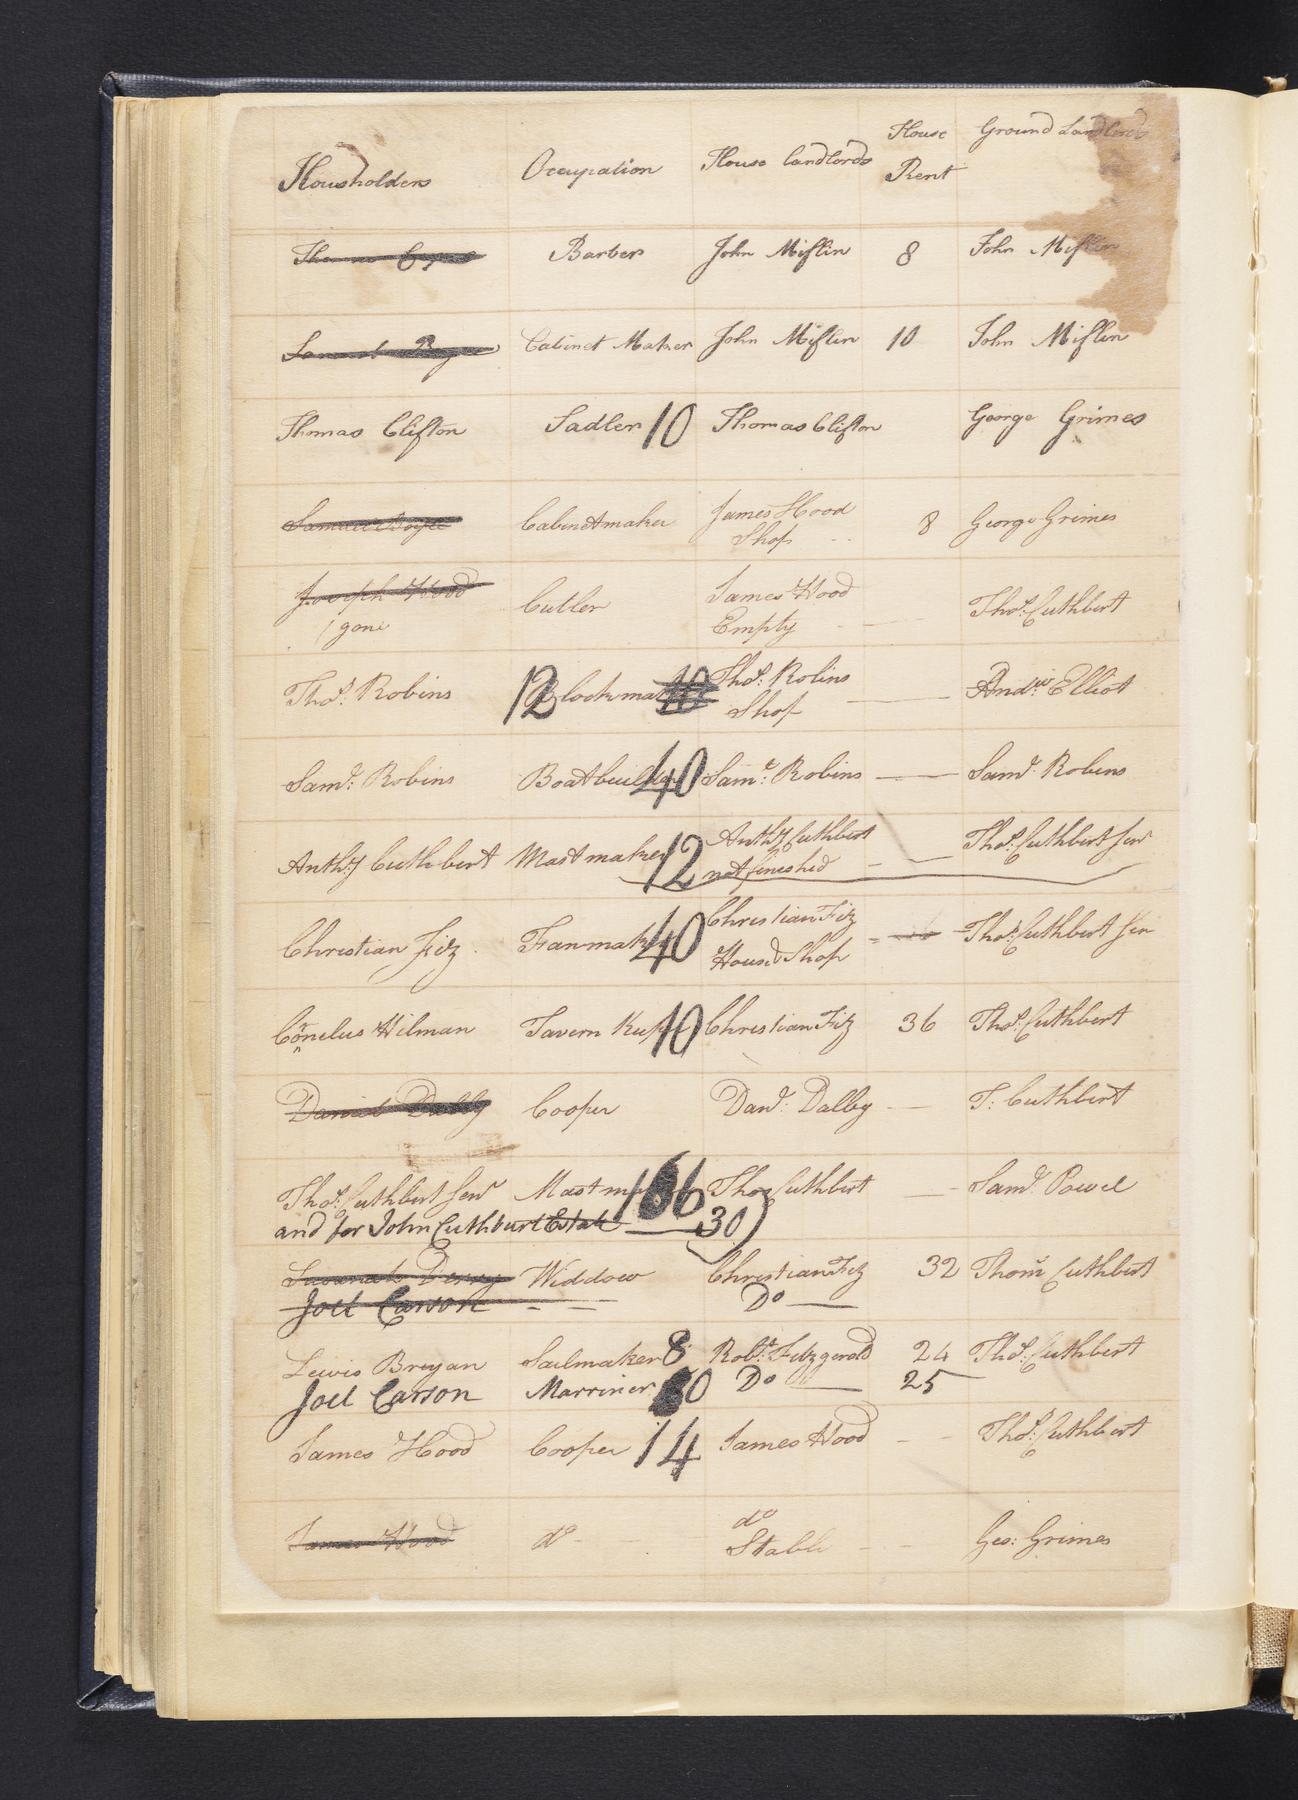 Housholders Occupation House landlords House Rent Ground Landlords
Barber John Miflin 8 John Miflin
Cabinet Maker John Miflin 10 John Miflin
Thomas Clifton Sadler 10 Thomas Clifton George Grimes
Samuel Cabinetmaker James Hood 8 George Grimes
Shop
Joseph Hood Cutler James Hood Thos. Cuthbert
gone Empty
Thos. Robins 12 10 Thos. Robins Andw Elliot
Shop
Saml. Robins Boatbuilder 40 Saml. Robins Saml. Robins
Anthy Cuthbert Mastmaker 12 Anthy Cuthbert Thos. Cuthbert Senr
not finished
Christian Fitz Fanmaker 40 Christian Fitz Thos. Cuthbert Sen
House & Shop
Connelus Hilman Tavern Keepr 10 Christian Fitz 36 Thos. Cuthbert
Daniel Dalby Cooper Danl. Dalby T: Cuthbert
Thos. Cuthbert Senr Thos Cuthbert Saml Powel
and for John Cuthburt Estate 30)
Widdow Christian Fitz 32 Thom Cuthbert
Joel Carson Do
Lewis Breyan Sailmaker 8 Robt. Fitzgerald 24 Thos. Cuthbert
Joel Carson Marriner Do 25
James Hood Cooper 14 James Hood Thos. Cuthbert
James Hood do do Geo: Grimes
Stable